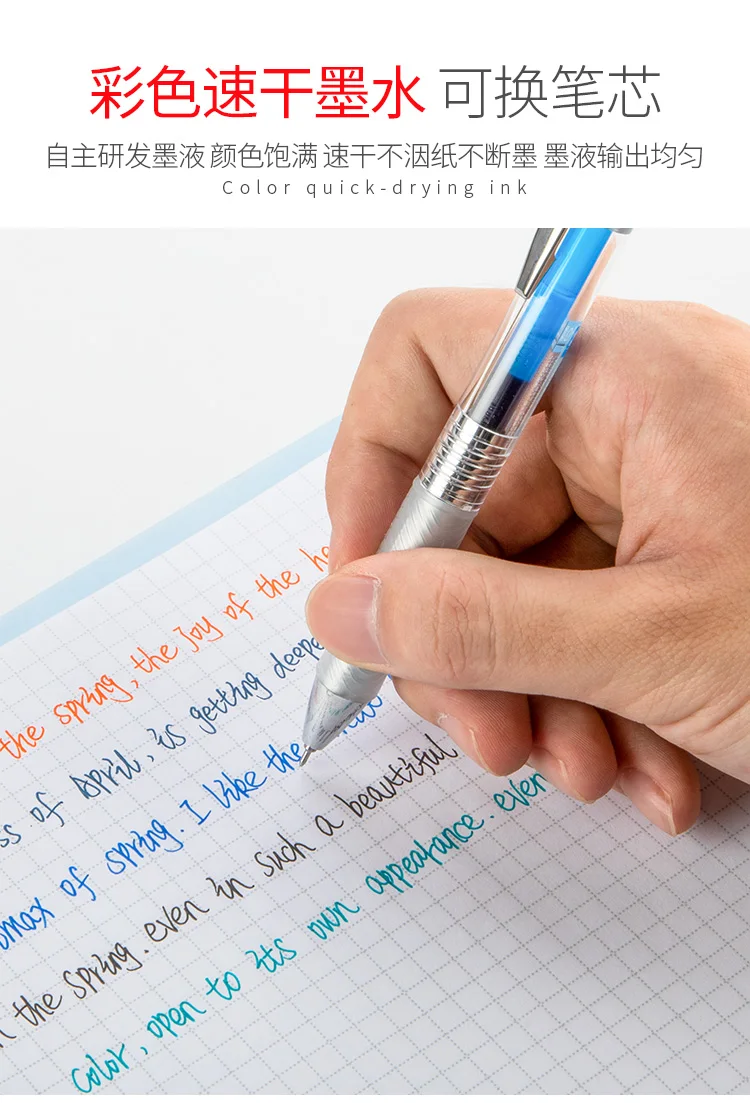 彩色速干墨水 可换笔芯
自主研发墨液 颜色饱满 速干不洇纸不断墨 墨液输出均匀
Color quick-drying ink
the spring, the joy of the
of April, is getting
of spring. I like the
the spring. even in such a beautiful
color, open to its own appearance. even